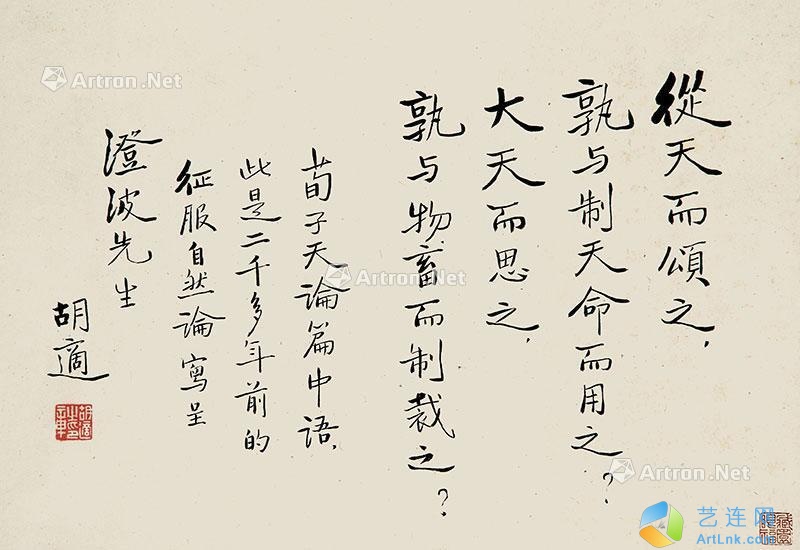 從天而頌之，
孰与制天命而用之？
大天而思之，
孰与物畜而制裁之？
荀子天論篇中語，
此是二千多年前的
征服自然論 寫呈
澄波先生
胡適
胡適之印
Artron.Net
Artron.Net
Artron.Net
Artron.Net
艺连网
ArtLnk.com